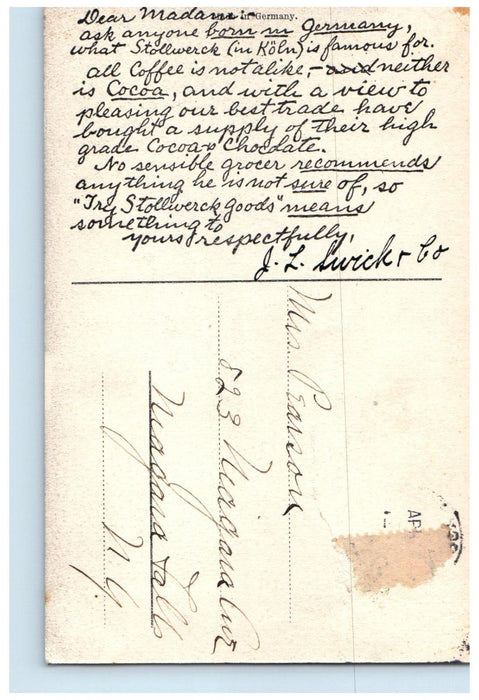 Dear Madam:- in Germany.
ask anyone born in Germany,
what Stollwerck (in Köln) is famous for.
all Coffee is not alike, - and neither
is Cocoa, and with a view to
pleasing our best trade have
bought a supply of their high
grade Cocoa & Choclate.
No sensible grocer recommends
anything he is not sure of, so
"Try Stollwerck goods" means
something to
yours respectfully,
J. L. Swick & Co
Mrs. Pearson
823 Niagara Ave
Niagara Falls
N.Y.
AP